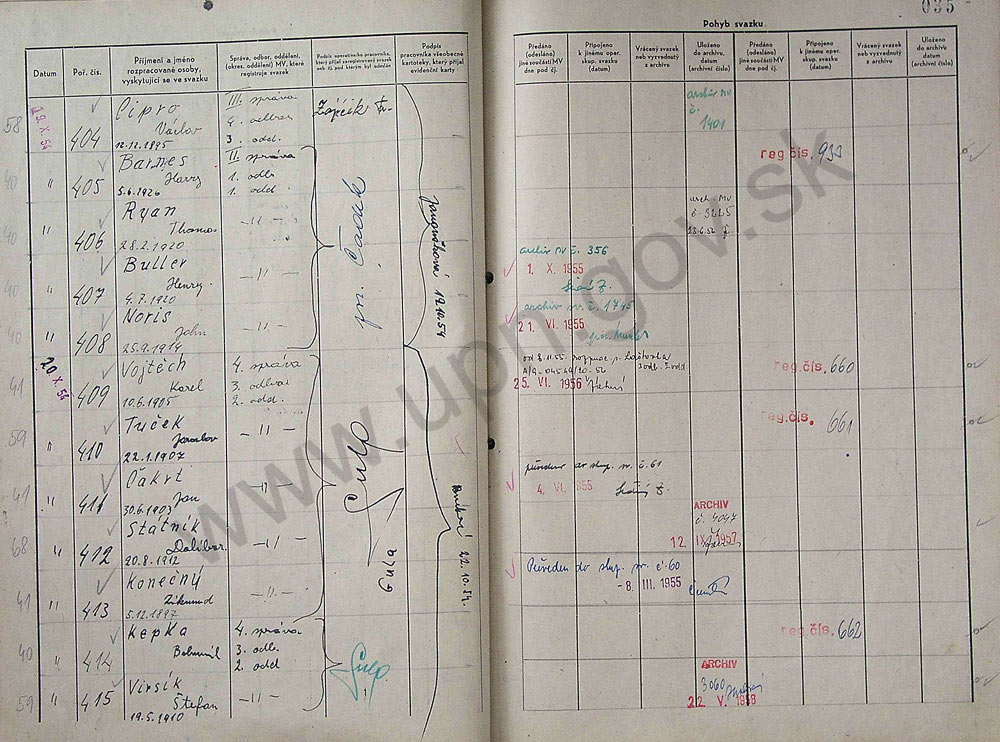 035
Pohyb svazku
Datum
Poř. čís.
Příjmení a jméno
rozpracované osoby,
vyskytující se ve svazku
Správa, odbor, oddělení,
(okres. oddělení) MV, které
registruje svazek
Podpis operativního pracovníka,
který přijal zaregistrovaný svazek
Podpis
pracovníka všeobecné
kartotéky, který přijal
evidenční karty
Předáno
(odesláno)
jiné součásti MV
dne pod čj.
Připojeno
k jinému oper.
skup. svazku
(datum)
Vrácený svazek
neb vyzvednutý
z archivu
Uloženo
do archivu,
datum
(archivní číslo)
Předáno
(odesláno)
jiné součásti MV
dne pod čj.
Připojeno
k jinému oper.
skup. svazku
(datum)
Vrácený svazek
neb vyzvednutý
z archivu
Uloženo
do archivu
(datum)
(archivní číslo)
58
19. X. 54
404
Cipro
Václav
12.12.1895
III. správa
4. odbor
3. odd.
Zajíčik
archiv MV
č.
1401
40
"
405
Barnes
Harry
5.6.1926
II. správa
1. odb.
1. odd
reg. čís. 933
40
"
406
Ryan
Thomas
28.2.1920
— " —
arch. MV
č 3225
40
"
407
Buller
Henry
4.7.1920
— " —
archiv MV č. 356
1. X. 1955
40
"
408
Noris
John
25.9.1914
— " —
archiv
21. VI. 1955
por. Čadek
12.10.54
41
20 X. 54
409
Vojtěch
Karel
10.6.1905
4. správa
3. odbor
2. odd.
25. VI. 1956
reg. čís. 660
59
"
410
Tuček
Jaroslav
22.1.1907
— " —
reg. čís. 661
41
"
411
Čákrt
Jan
30.6.1903
— " —
převeden do skup. sv. č. 61
4. VI. 1955
68
"
412
Statník
Dalibor
20.8.1912
— " —
ARCHIV
č. 4047
12. IX. 1957
Šulp
Gula
22.10.54.
41
"
413
Konečný
Zikmund
5.12.1897
— " —
Převeden do skup. sv. č. 60
-8. III. 1955
40
"
414
Kepka
Bohumil
4. správa
3. odb.
2. odd
Šulp
reg. čís. 662
59
"
415
Virsík
Štefan
19.5.1910
— " —
ARCHIV
3060
22. V. 1958
www.upn.gov.sk